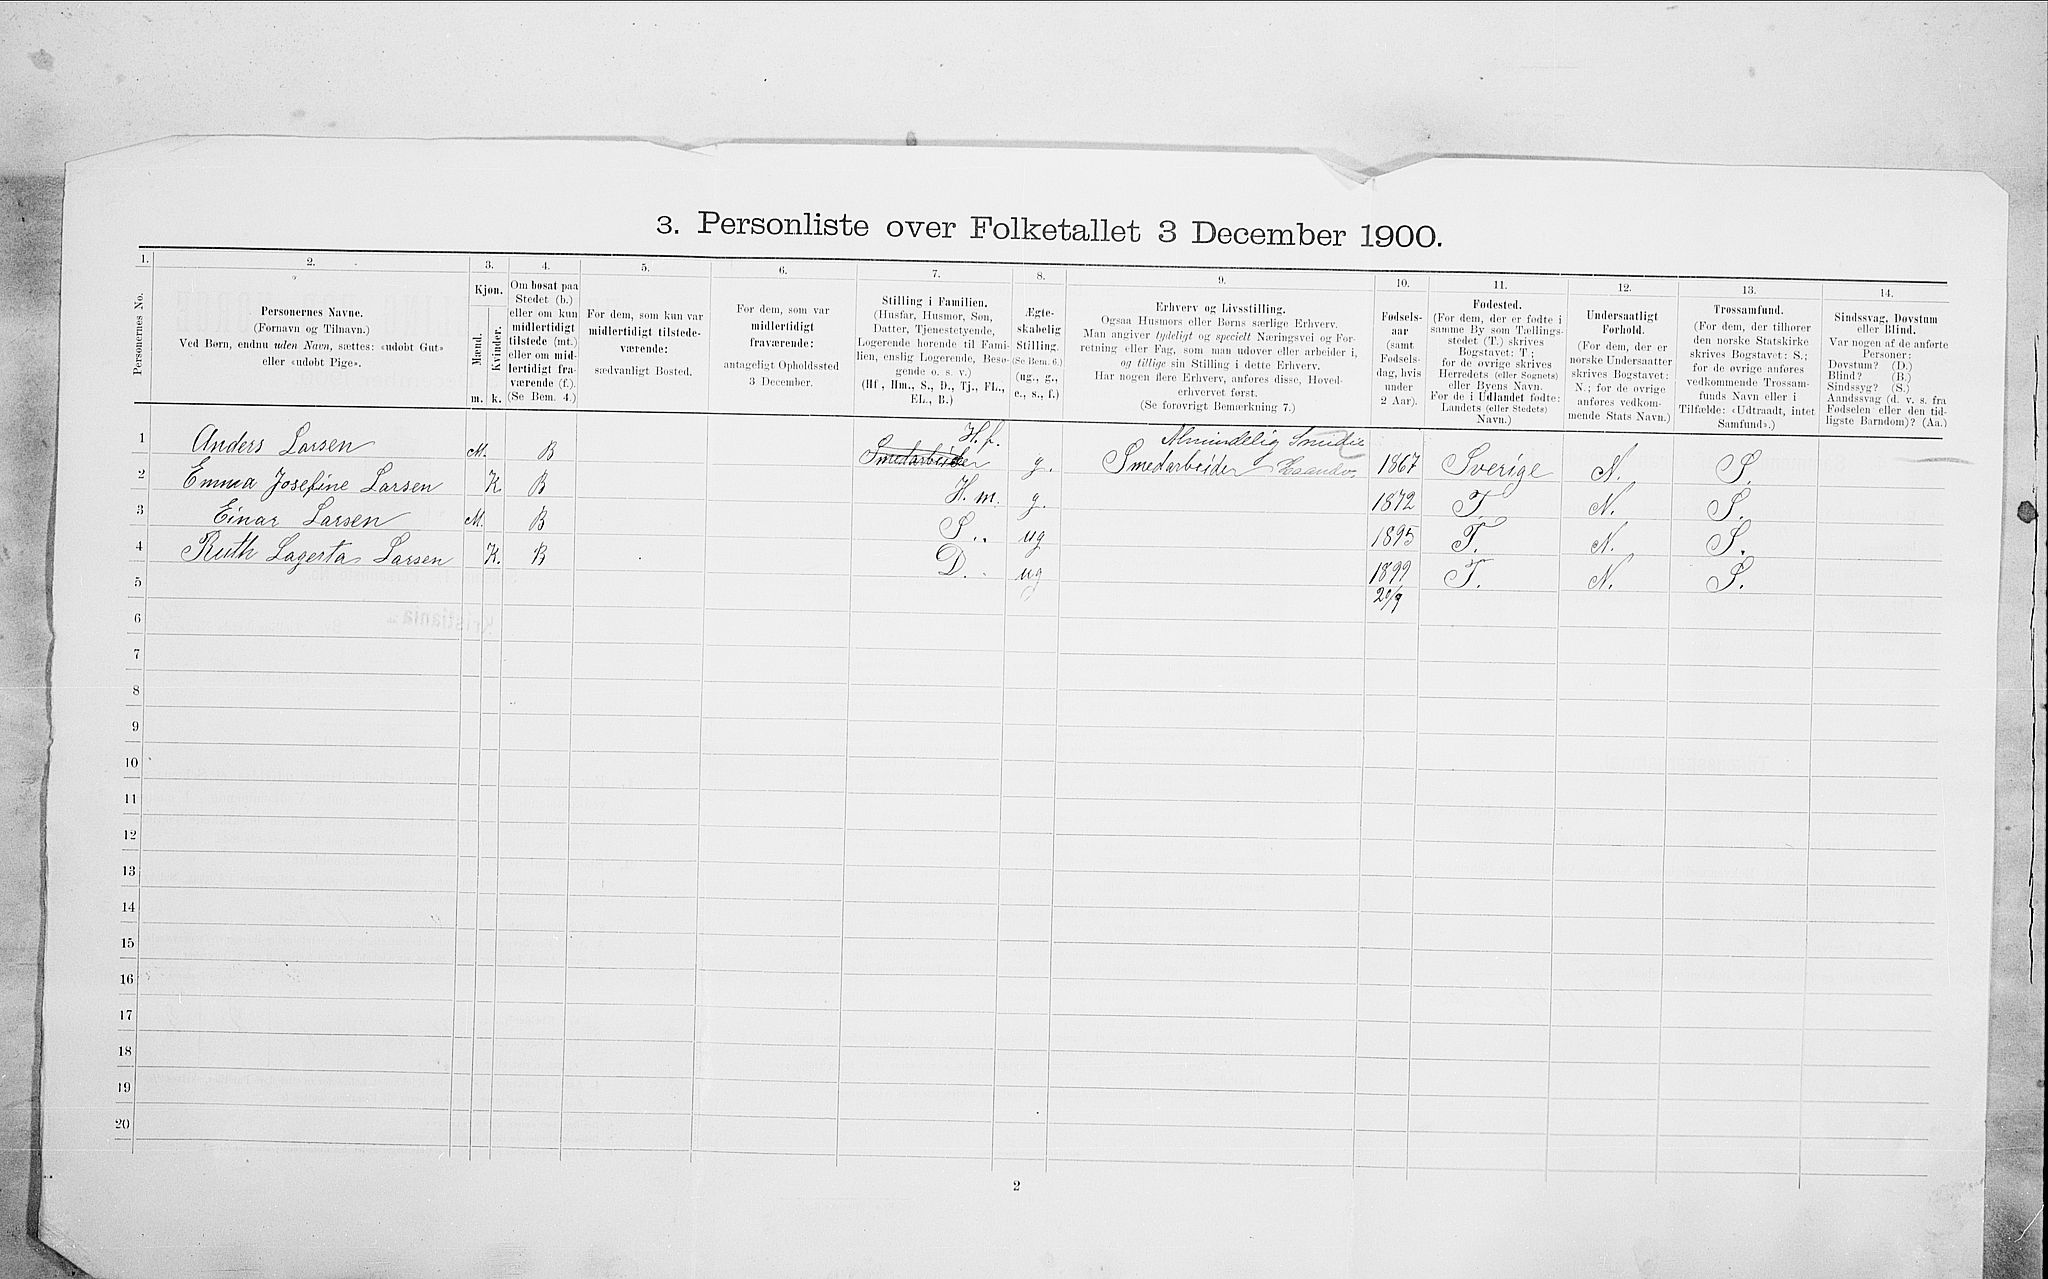 3. Personliste over Folketallet 3 December 1900.
1. 2. 3. 4. 5. 6. 7. 8. 9. 10. 11. 12. 13. 14.
Personernes No.
Personernes Navne.
(Fornavn og Tilnavn.)
Ved Børn, endnu uden Navn, sættes: «udøbt Gut»
eller «udøbt Pige».
Kjøn.
Mænd.
Kvinder.
m. k.
Om bosat paa
Stedet (b.)
eller om kun
midlertidigt
tilstede (mt.)
eller om mid-
lertidigt fra-
værende (f.).
(Se Bem. 4.)
For dem, som kun var
midlertidigt tilstede-
værende:
sædvanligt Bosted.
For dem, som var
midlertidigt
fraværende:
antageligt Opholdssted
3 December.
Stilling i Familien.
(Husfar, Husmor, Søn,
Datter, Tjenestetyende,
Logerende hørende til Fami-
lien, enslig Logerende, Besø-
gende o. s. v.)
(Hf., Hm., S., D., Tj., FL.,
EL., B.)
Ægte-
skabelig
Stilling.
(Se Bem. 6.)
(ug., g.,
e., s., f.)
Erhverv og Livsstilling.
Ogsaa Husmors eller Børns særlige Erhverv.
Man angiver tydeligt og specielt Næringsvei og For-
retning eller Fag, som man udøver eller arbeider i,
og tillige sin Stilling i dette Erhverv.
Har nogen flere Erhverv, anføres disse, Hoved-
erhvervet først.
(Se forøvrigt Bemærkning 7.)
Fødsels-
aar
(samt
Fødsels-
dag, hvis
under
2 Aar).
Fødested.
(For dem, der er fødte i
samme By som Tællings-
stedet (T.) skrives
Bogstavet: T;
for de øvrige skrives
Herredets (eller Sognets)
eller Byens Navn.
For de i Udlandet fødte:
Landets (eller Stedets)
Navn.)
Undersaatligt
Forhold.
(For dem, der er
norske Undersaatter
skrives Bogstavet:
N.; for de øvrige
anføres vedkom-
mende Stats Navn.)
Trossamfund.
(For dem, der tilhører
den norske Statskirke
skrives Bogstavet: S.;
for de øvrige anføres
vedkommende Trossam-
funds Navn eller i
Tilfælde: «Udtraadt, intet
Samfund».)
Sindssvag, Døvstum
eller Blind.
Var nogen af de anførte
Personer:
Døvstum? (D.)
Blind? (B.)
Sindssyg? (S.)
Aandssvag (d. v. s. fra
Fødselen eller den tid-
ligste Barndom)? (Aa.)
H. f. Almindelig Smedie
1 Anders Larsen M. B Smedarbeider g. Smedarbeider Haandv. 1867 Sverige N. S.
2 Emma Josefine Larsen K. B H. m. g. 1872 T. N. S.
3 Einar Larsen M. B S. ug 1895 T. N. S.
4 Ruth Lagerta Larsen K. B D. ug 1899 T. N. S.
5 20/9
6
7
8
9
10
11
12
13
14
15
16
17
18
19
20
2